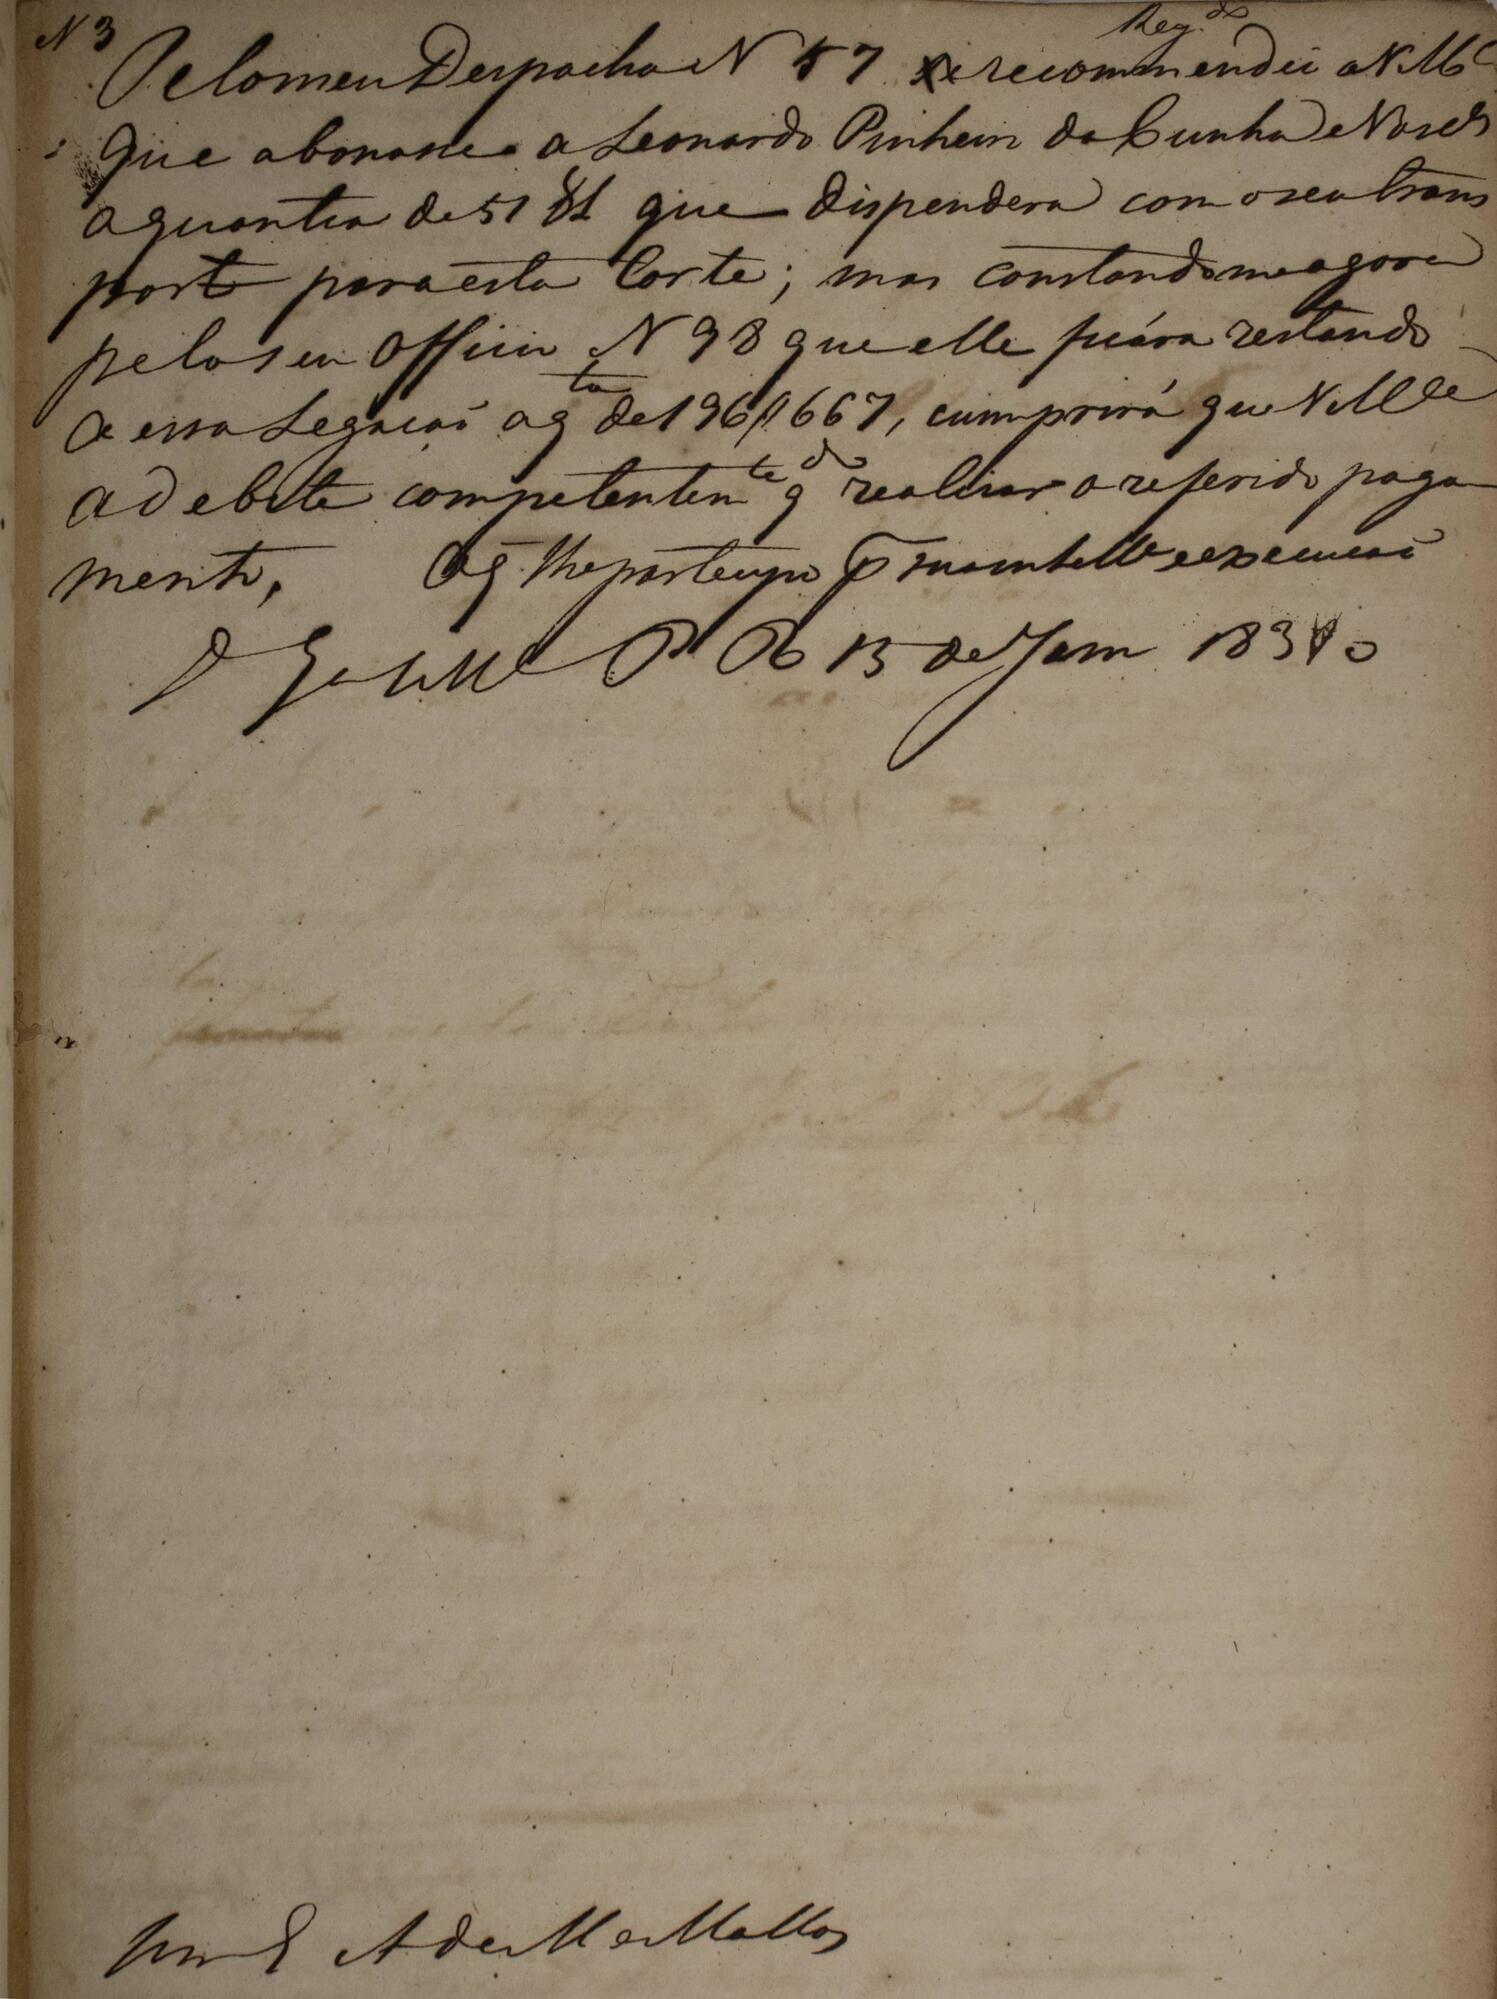 N 3
Reg.do
Pelo meu Despacho N 57 recommendei a V. Mce
que abonasse a Leonardo Pinheiro da Cunha e Vasclos
a quantia de 51 que dispendera com o seu trans
porte para esta Corte; mas constando me agora
pelo seu Officio N 98 que elle ficára restando
a essa Legação a qta de 196$667, cumprirá que V. Mce
a debite competentemte qdo realisar o referido paga
mento. O q lhe participo pa sua intellia e execução
D Ge a V Mce P R 15 de Janro 1840
Snr E A de M e Mattos